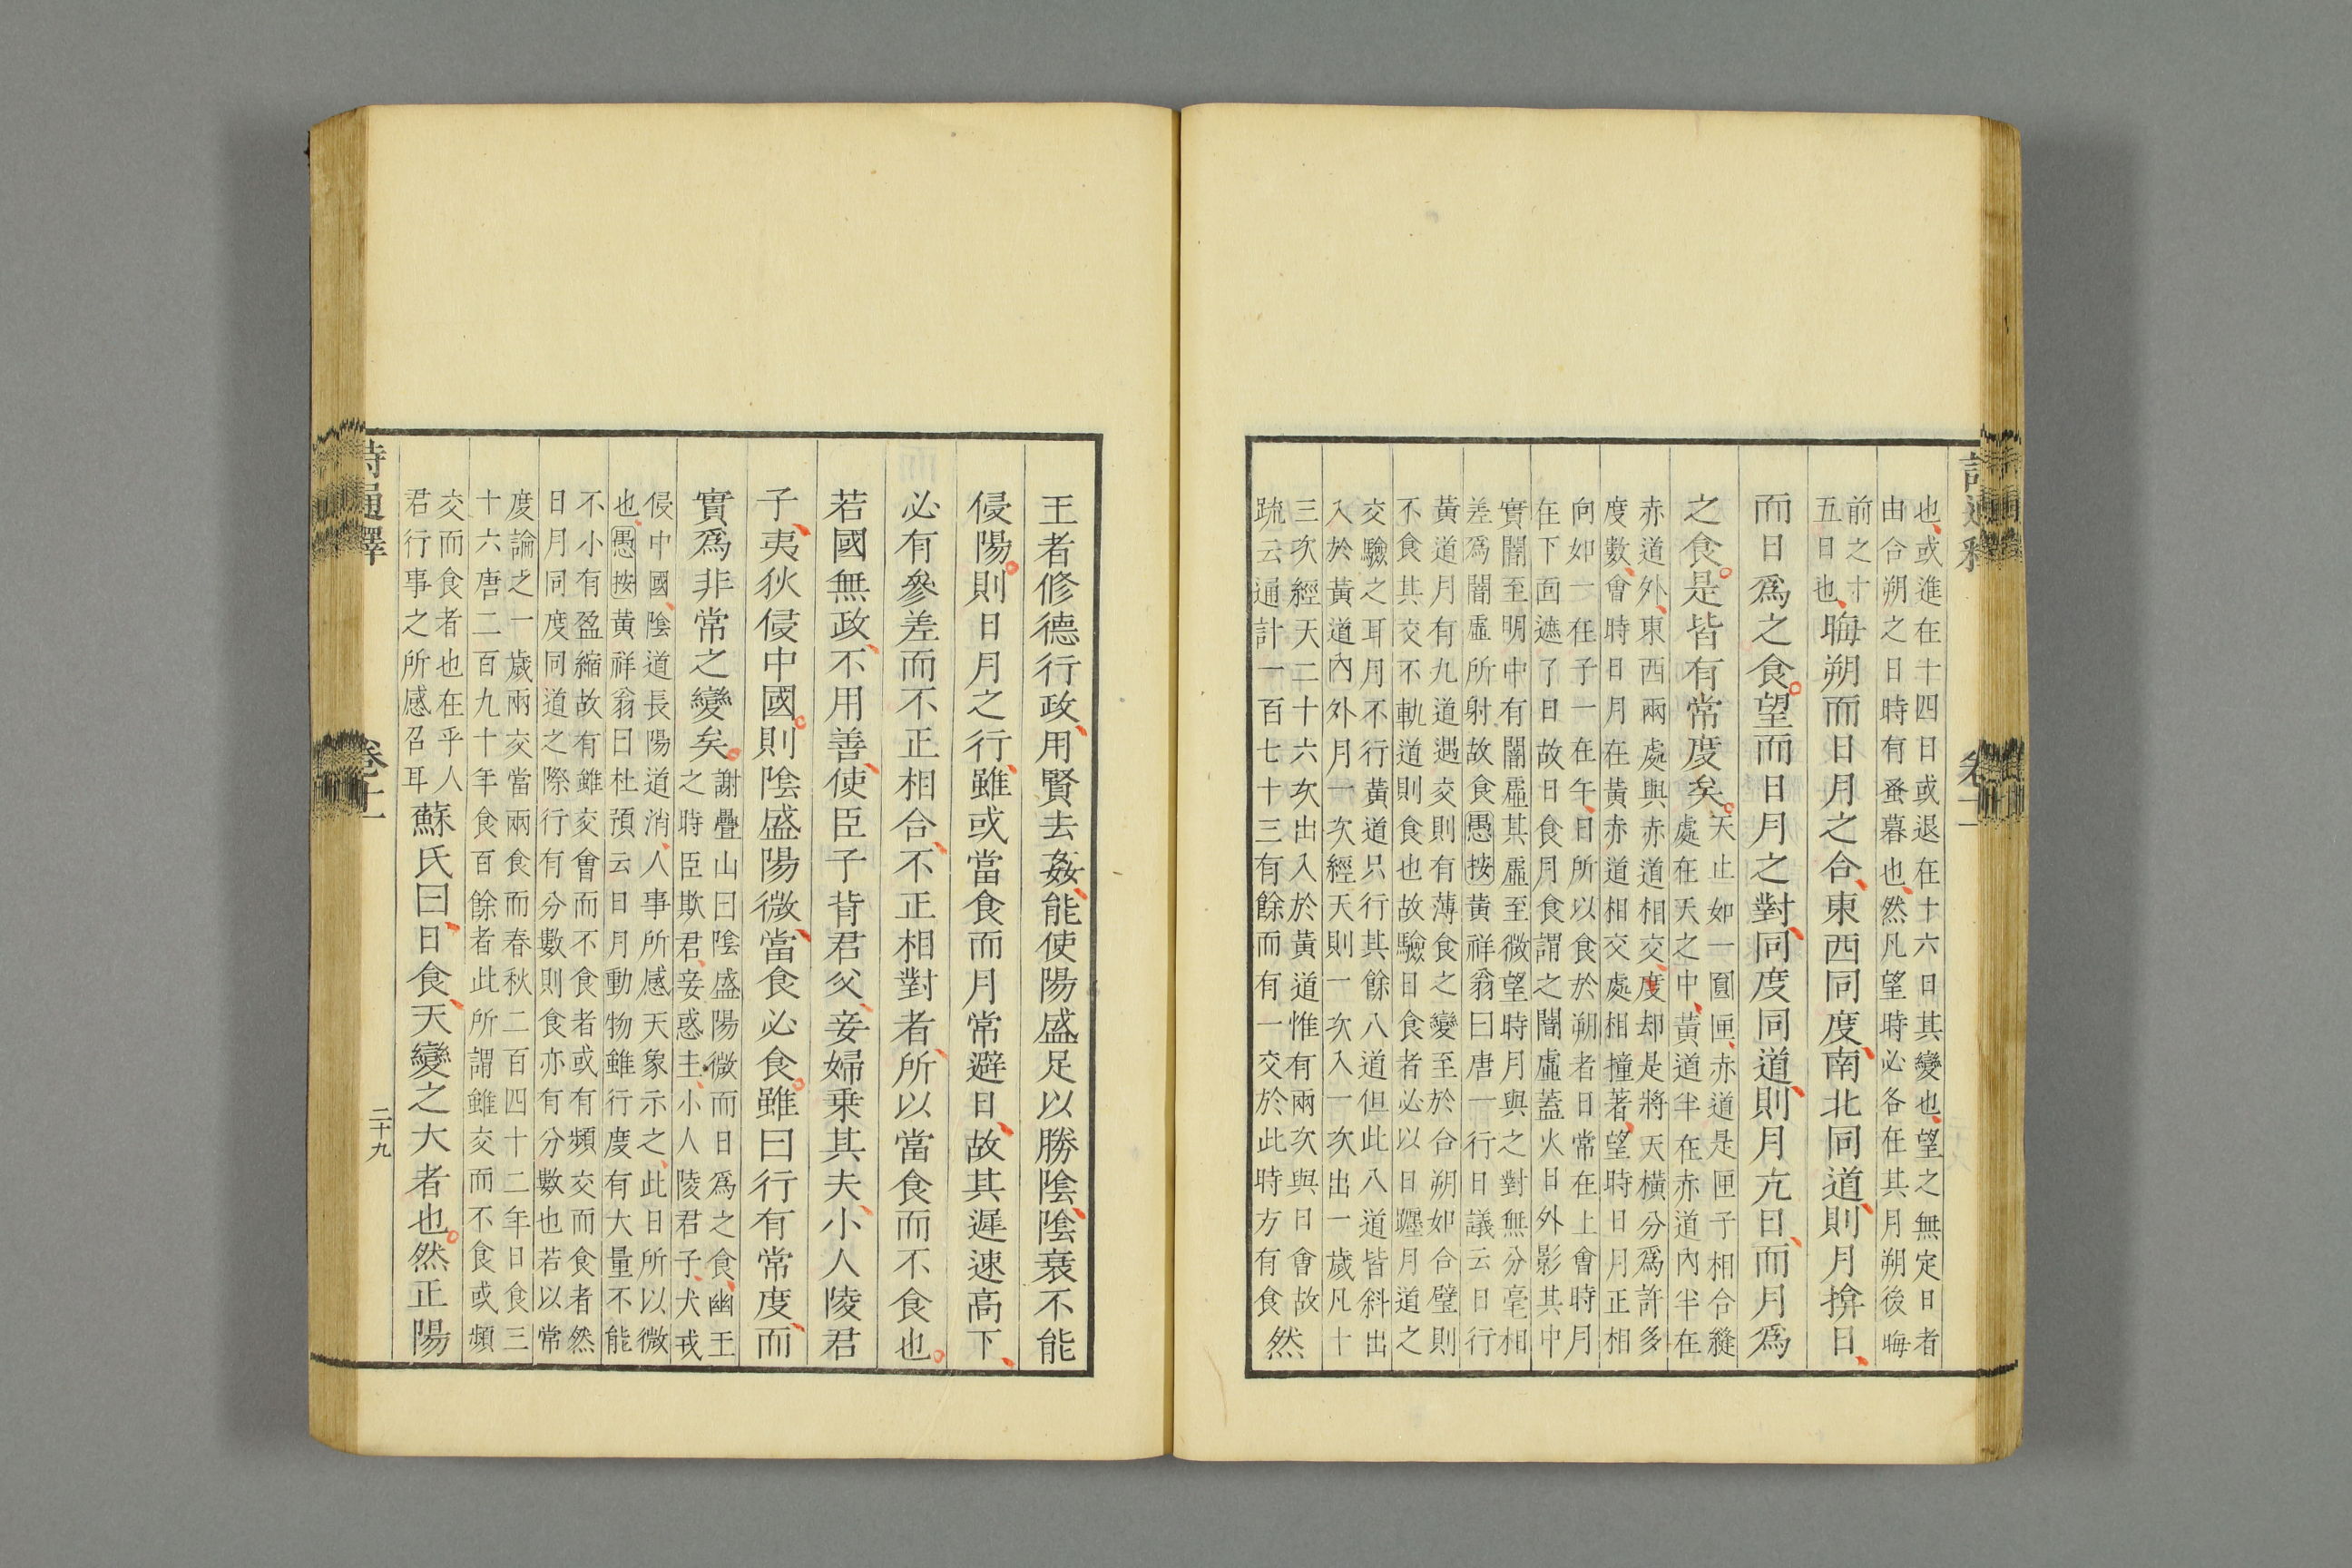 也或進在十四日或退在十六日其變也望之無定日者
由合朔之日時有蚤暮也然凡望時必各在其月朔後晦
前之十
五日也
晦朔而日月之合東西同度南北同道則月揜日
而日爲之食望而日月之對同度同道則月亢日而月爲
之食是皆有常度矣
天止如一圓匣赤道是匣子相合縫
處在天之中黃道半在赤道內半在
赤道外東西兩處與赤道相交度却是將天橫分爲許多
度數會時日月在黃赤道相交處相撞著望時日月正相
向如一在子一在午日所以食於朔者日常在上會時月
在下面遮了日故日食月食謂之闇虛蓋火日外影其中
實闇至明中有闇虛其虛至微望時月與之對無分毫相
差爲闇虛所射故食愚按黃祥翁曰唐一行日議云日行
黃道月有九道遇交則有薄食之變至於合朔如合璧則
不食其交不軌道則食也故驗日食者必以日躔月道之
交驗之耳月不行黃道只行其餘八道但此八道皆斜出
入於黃道內外月一次經天則一次入一次出一歲凡十
三次經天二十六次出入於黃道惟有兩次與日會故
䟽云通計一百七十三有餘而有一交於此時方有食
然
王者修德行政用賢去姦能使陽盛足以勝陰陰衰不能
侵陽則日月之行雖或當食而月常避日故其遲速高下
必有參差而不正相合不正相對者所以當食而不食也
若國無政不用善使臣子背君父妾婦乗其夫小人陵君
子夷狄侵中國則陰盛陽微當食必食雖曰行有常度而
實爲非常之變矣
謝疊山曰陰盛陽微而日爲之食幽王
之時臣欺君妾惑主小人陵君子犬戎
侵中國陰道長陽道消人事所感天象示之此日所以微
也愚按黃祥翁曰杜預云日月動物雖行度有大量不能
不小有盈縮故有雖交會而不食者或有頻交而食者然
日月同度同道之際行有分數則食亦有分數也若以常
度論之一歲兩交當兩食而春秋二百四十二年日食三
十六唐二百九十年食百餘者此所謂雖交而不食或頻
交而食者也在乎人
君行事之所感召耳
蘇氏曰日食天變之大者也然正陽
詩通釋
卷十一
二十九